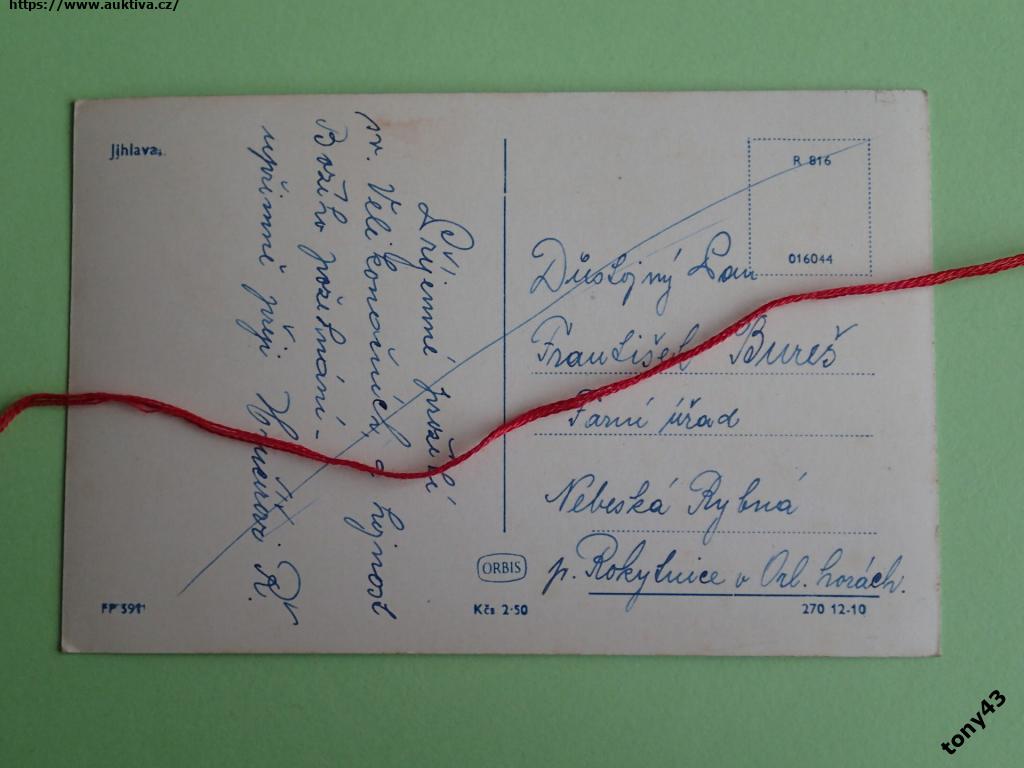 https://www.auktiva.cz/
Jihlava.
Při
příjemné prožití
sv. Velikonočních a hojnost
Božího požehnání
upřímně přeji
R 816
016044
Důstojný Pan
František Bureš
Farní úřad
Nebeská Rybná
p. Rokytnice v Orl. horách.
ORBIS
FP 591
Kčs 2·50
270 12-10
tony43